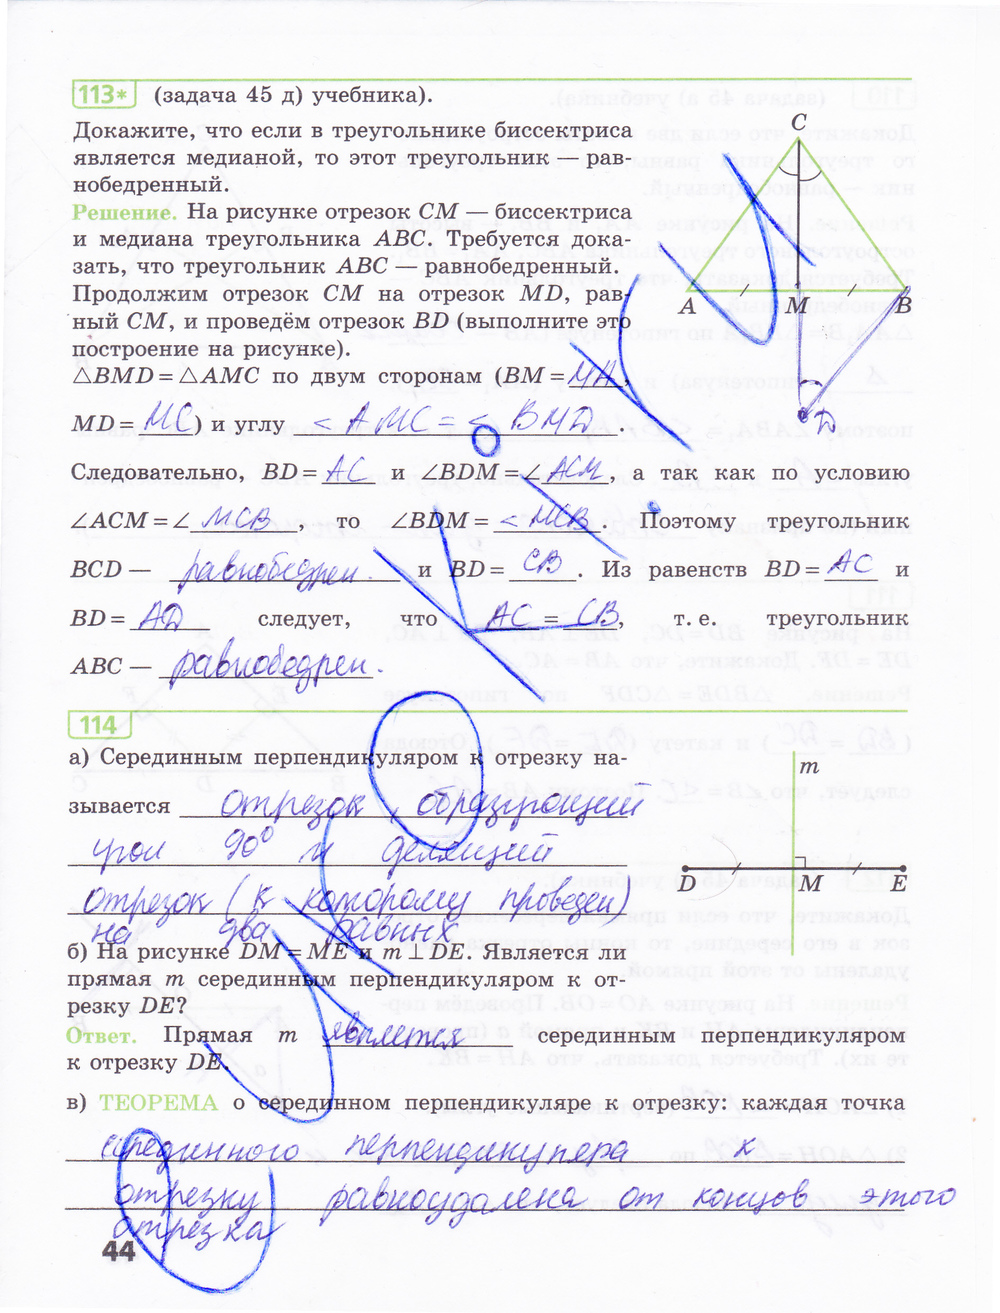 113* (задача 45 д) учебника).
Докажите, что если в треугольнике биссектриса
является медианой, то этот треугольник — рав-
нобедренный.
Решение. На рисунке отрезок CM — биссектриса
и медиана треугольника ABC. Требуется дока-
зать, что треугольник ABC — равнобедренный.
Продолжим отрезок CM на отрезок MD, рав-
ный CM, и проведём отрезок BD (выполните это
построение на рисунке).
△BMD = △AMC по двум сторонам (BM = MA,
MD = MC) и углу < AMC = < BMD.
Следовательно, BD = AC и ∠BDM = ∠ ACM, а так как по условию
∠ACM = ∠ MCB, то ∠BDM = < MCB. Поэтому треугольник
BCD — равнобедрен. и BD = CB. Из равенств BD = AC и
BD = AD следует, что AC = CB, т. е. треугольник
ABC — равнобедрен.
C
A M B
D
114
а) Серединным перпендикуляром к отрезку на-
зывается отрезок, образующий
угол 90° и делящий
отрезок (к которому проведен)
на два равных
б) На рисунке DM = ME и m ⊥ DE. Является ли
прямая m серединным перпендикуляром к от-
резку DE?
Ответ. Прямая m является серединным перпендикуляром
к отрезку DE.
m
D M E
в) ТЕОРЕМА о серединном перпендикуляре к отрезку: каждая точка
серединного перпендикуляра к
отрезку равноудалена от концов этого
отрезка
44